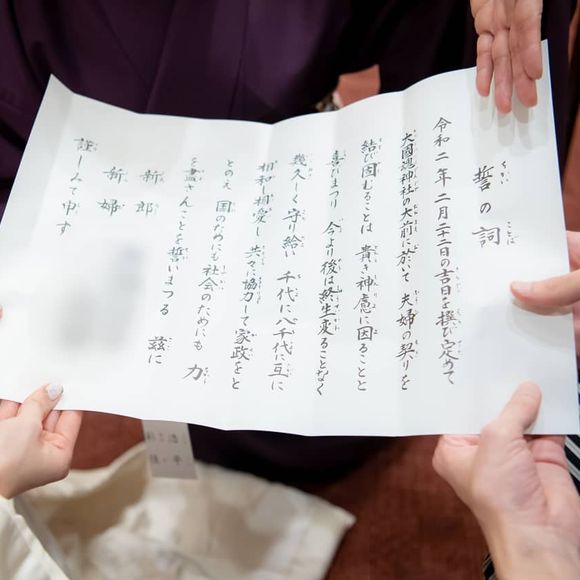 誓の詞
令和二年二月二十二日の吉日を撰び定めて
大國魂神社の大前に於いて 夫婦の契りを
結び固むることは 貴き神慮に因ることと
喜びまつり 今より後は終生変ることなく
幾久しく守り給い 千代に八千代に亙に
相和し相愛し 共々に協力して家政をと
とのえ 国のためにも社会のためにも 力
を盡さんことを誓いまつる 茲に
新郎
新婦
謹しみて申す